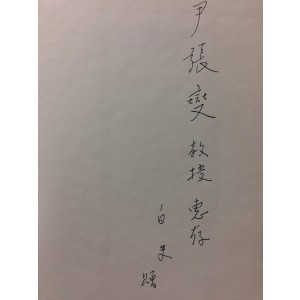 尹張燮 教授 惠存
白 史